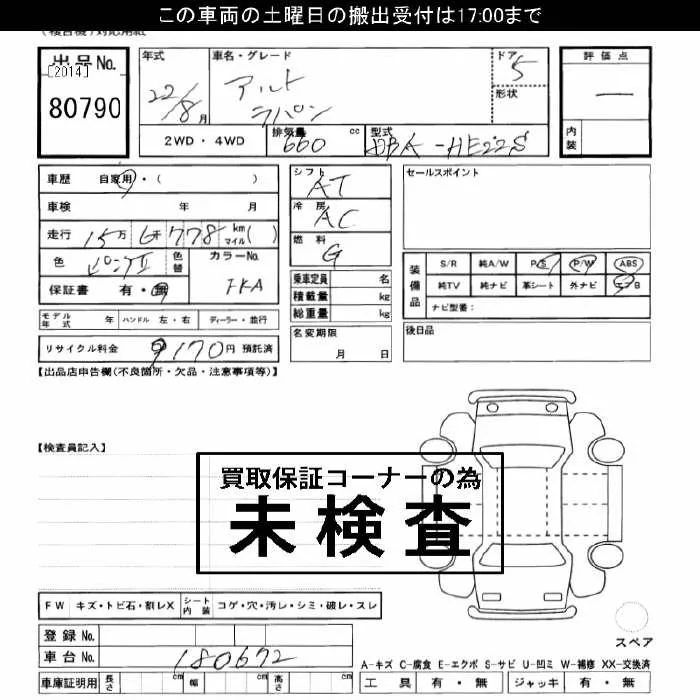 この車両の土曜日の搬出受付は17:00まで
出品No.
[2014]
80790
年式
22/8月
車名・グレード
アルト
ラパン
ドア
5
形状
評価点
―
内装
2WD・4WD
排気量
660 cc
型式
DBA-HE22S
車歴 自家用・( )
車検 年 月
走行 15万 6千 778 km マイル ( )
色 ピンクII 色替
カラーNo.
保証書 有・無
モデル年式 年 ハンドル 左・右 ディーラー・並行
リサイクル料金 9170円 預託済
シフト AT
冷房 AC
燃料 G
乗車定員 名
積載量 kg
総重量 kg
名変期限
月 日
セールスポイント
装備品
S/R 純A/W P/S P/W ABS
純TV 純ナビ 革シート 外ナビ エアB
ナビ型番:
後日品
【出品店申告欄(不良箇所・欠品・注意事項等)】
【検査員記入】
買取保証コーナーの為
未検査
FW キズ・トビ石・割レX シート内装 コゲ・穴・汚レ・シミ・破レ・スレ
登録No.
車台No. 180672
車庫証明用 長さ cm 幅 cm 高さ cm
スペア
A-キズ C-腐食 E-エクボ S-サビ U-凹ミ W-補修 XX-交換済
工具 有・無 ジャッキ 有・無